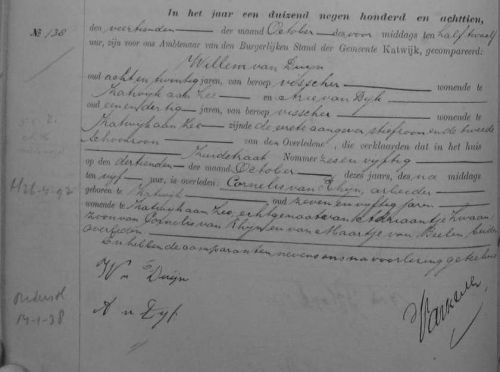 In het jaar een duizend negen honderd en achttien,
№ 138
den veertienden der maand October des voor middags ten half twaalf
ure, zijn voor ons Ambtenaar van den Burgerlijken Stand der Gemeente Katwijk, gecompareerd:
Willem van Duijn
oud acht en twintig jaren, van beroep visscher wonende te
Katwijk aan Zee en Arie van Dijk
oud een en dertig jaren, van beroep visscher wonende te
Katwijk aan Zee zijnde de eerste aangever stiefzoon en de tweede
schoonzoon van den Overledene, die verklaarden dat in het huis
Zuidstraat Nommer zes en vijftig
op den dertienden der maand October dezes jaars, des na middags
ten vijf ure, is overleden: Cornelis van Rhijn, arbeider
geboren te Katwijk oud zeven en vijftig jaren
wonende te Katwijk aan Zee, echtgenoot van Adriaantje Zwaan,
zoon van Cornelis van Rhijn en van Maartje van Beelen, beiden
overleden
En hebben de comparanten nevens ons na voorlezing geteekend
W v Duijn
A v Dijk